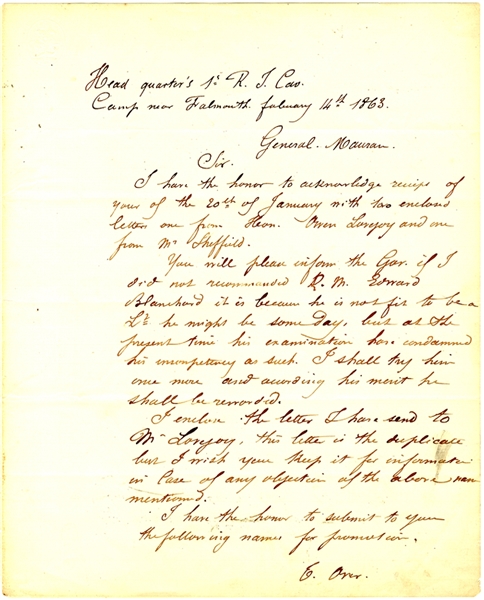 Head quarter's 1st R. I. Cav.
Camp near Falmouth. febuary 14th 1863.
General. Mauran.
Sir.
I have the honor to acknowledge receipt of
your of the 20th of January with two enclosed
letter one from Hon. Owen Lovejoy and one
from Mr Sheffield.
You will please inform the Gov. if I
did not recommanded Q. M. Edward
Blanchard it is becaue he is not fit to be a
Lt. he might be some day, but at the
present time his examination has condamned
his incompetency as such. I shall try him
once more and acording his merit he
shall be rewarded.
I enclose the letter I have send to
Mr Lovejoy, this lette is the duplicate
but I wish you keep it for information
in case of any objection of the above
mentionned.
I have the honor to submit to you
the following names for promotion.
Over.